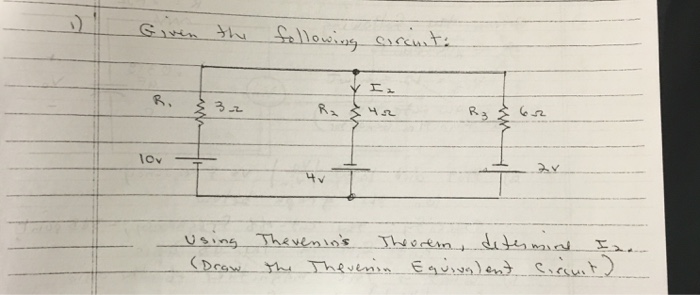 1) Given the following circuit:
I2
R1 3Ω R2 4Ω R3 6Ω
10v 4v 2v
Using Thevenin's Theorem, determine I2.
(Draw the Thevenin Equivalent Circuit)